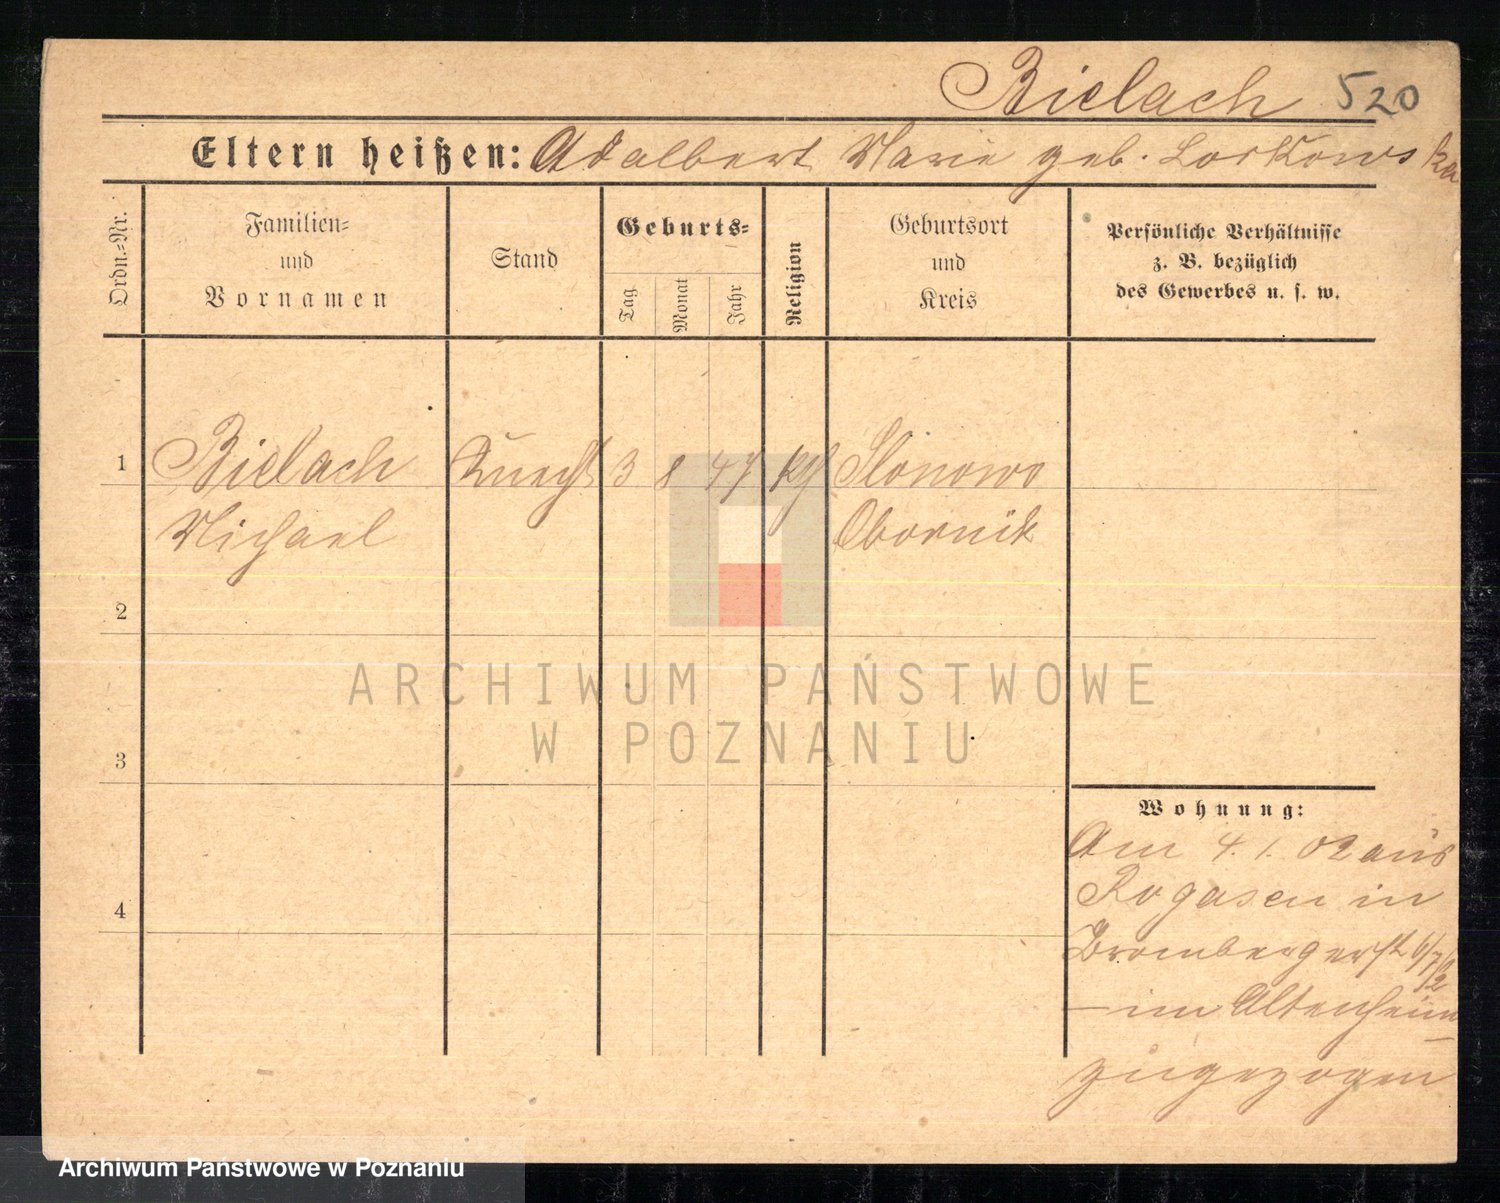 Bielach 520
Eltern heißen: Adalbert Marie geb. Loskowska
Ordn.=Nr.
Familien=
und
Vornamen
Stand
Geburts=
Tag
Monat
Jahr
Religion
Geburtsort
und
Kreis
Persönliche Verhältnisse
z. B. bezüglich
des Gewerbes u. s. w.
1 Bielach Knecht 3 8 47 kth Slonowo
Michael Obornik
2
ARCHIWUM PAŃSTWOWE
W POZNANIU
3
Wohnung:
Am 4. 1. 02 aus
Rogasen in
4
Brombergerst 6/7/2
– im Altenheim –
zugezogen
Archiwum Państwowe w Poznaniu